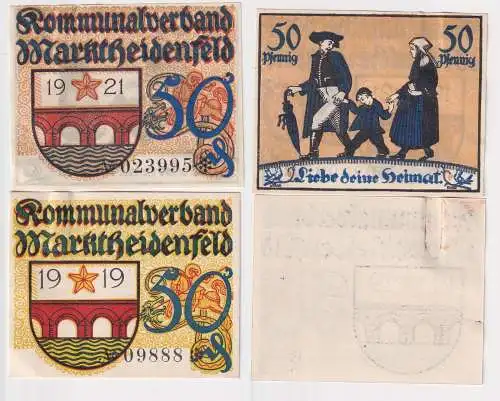 Kommunalverband
Marktheidenfeld
19 21
50
023995
50
Pfennig
50
Pfennig
Liebe deine Heimat.
Kommunalverband
Marktheidenfeld
19 19
50
09888